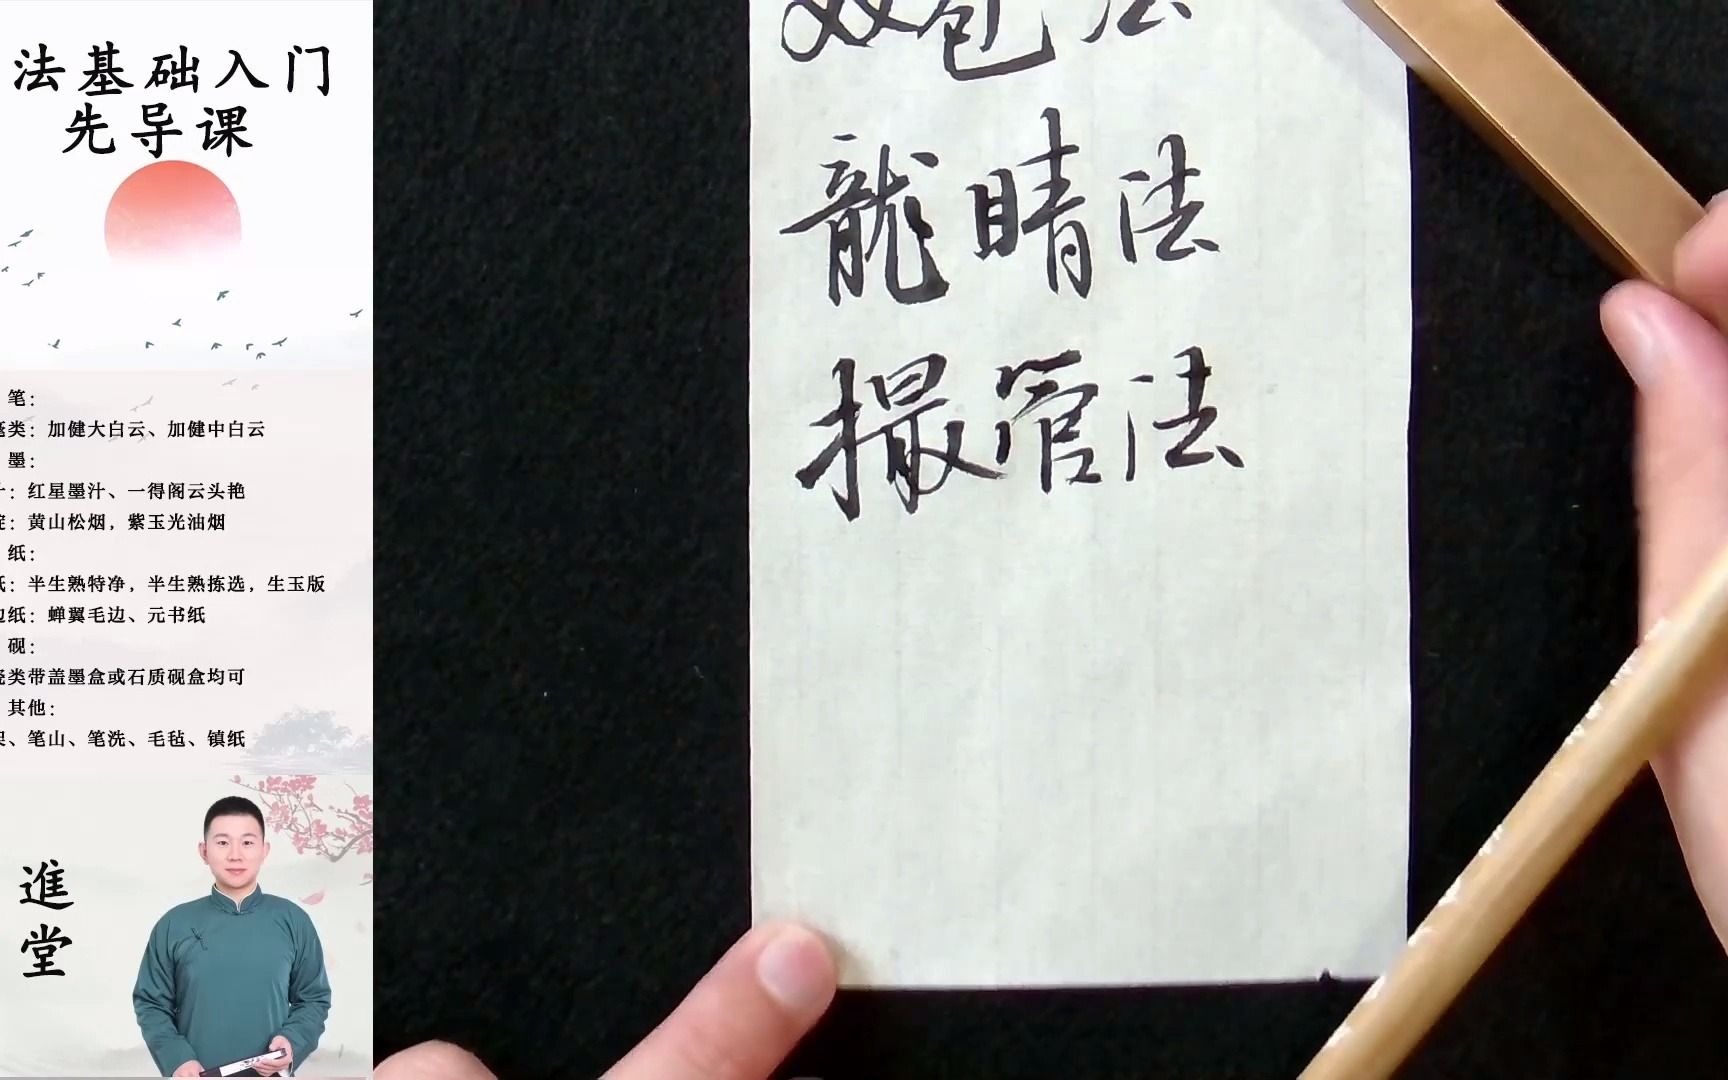 法基础入门
先导课
笔：
毫类：加健大白云、加健中白云
墨：
汁：红星墨汁、一得阁云头艳
锭：黄山松烟，紫玉光油烟
纸：
纸：半生熟特净，半生熟拣选，生玉版
边纸：蝉翼毛边、元书纸
砚：
瓷类带盖墨盒或石质砚盒均可
其他：
架、笔山、笔洗、毛毡、镇纸
進
堂
双包法
龍睛法
撮管法